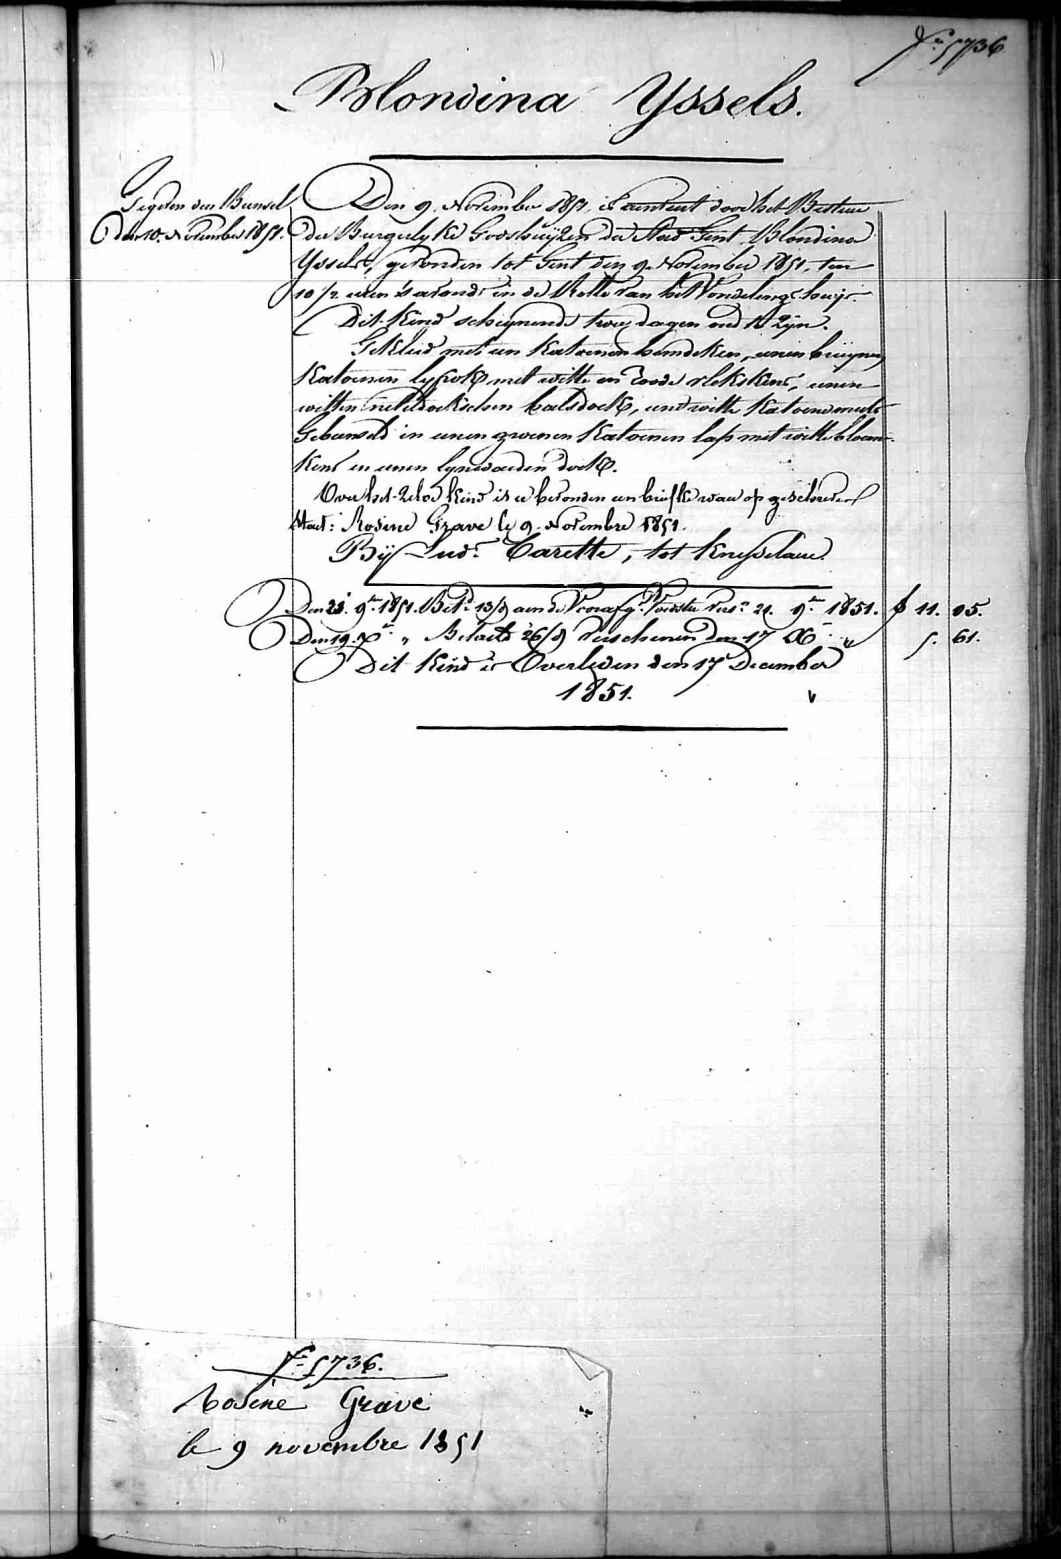 Fo. 5736
Blondina Yssels.
Gegeven den Bunsel
den 10. November 1851.
Den 9. November 1851. is aenveert door het Bestuer
der Burgerlyke Godshuijzen der Stad Gent Blondina
Yssels, gevonden tot Gent den 9. November 1851, ten
10 1/2 uren 's avonds in de Rolle van het Vondelingshuijs
Dit Kind schynende twee dagen oud te zijn.
Gekleed met een Katoenen hemdeken, eenen bruijnen
Katoenen lyfrok met witte en roode vlekskens, eenen
witten neteldoekschen halsdoek, eene witte Katoene muts
Gebunseld in eenen groenen Katoenen lap met witte bloem-
kens en eenen lynwaeden doek.
Over het zelve Kind is er bevonden een briefke waer op geschreven
staet: Rosine Grave le 9. Novembre 1851.
Bij Lud. Carette, tot Knesselaere.
Den 23. 9bre 1851. Bet. 13/9 aen de Voedster vers. 21. 9bre 1851. f 11. 05.
Den 19. Xbre " Betaelt 26/9 verschenen den 17 Xbre " 5. 61.
Dit Kind is Overleden den 17 December
1851.
Fo. 5736.
Rosine Grave
le 9 novembre 1851